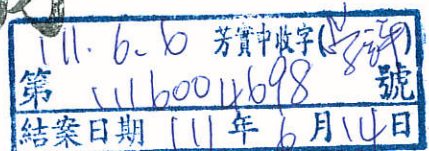 111.6.6 芳實中收字(學輔)
第 1116004698 號
結案日期 111年6月14日